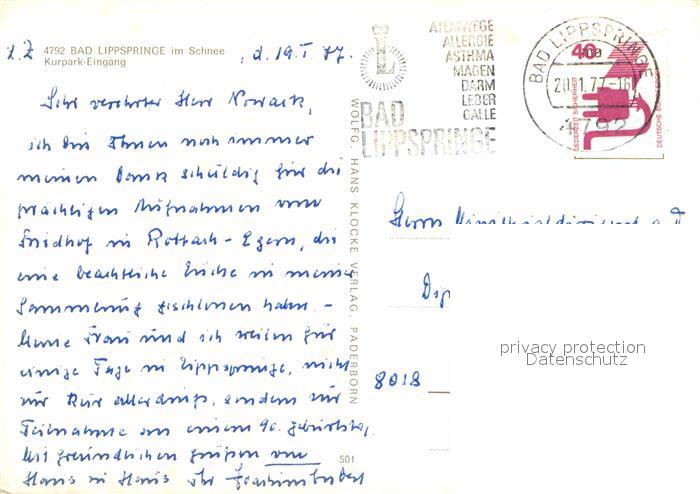 4792 BAD LIPPSPRINGE im Schnee
Kurpark-Eingang
z.Z , d. 19.I.77.
Sehr verehrter Herr Nowack,
ich bin Ihnen noch immer
meinen Dank schuldig für die
prächtigen Aufnahmen vom
Friedhof in Rottach-Egern, die
eine beachtliche Lücke in meiner
Sammlung geschlossen haben. -
Meine Frau und ich weilen für
einige Tage in Lippspringe, nicht
zur Kur allerdings, sondern zur
Teilnahme an einem 90. Geburtstag.
Mit freundlichen Grüßen von
Haus zu Haus Ihr
WOLFG. HANS KLOCKE VERLAG, PADERBORN
501
ATEMWEGE
ALLERGIE
ASTHMA
MAGEN
DARM
LEBER
GALLE
BAD
LIPPSPRINGE
BAD LIPPSPRINGE
20.1.77-16
4792
40
JEDERZEIT SICHERHEIT
DEUTSCHE BUNDESPOST
Herrn
8018
privacy protection
Datenschutz